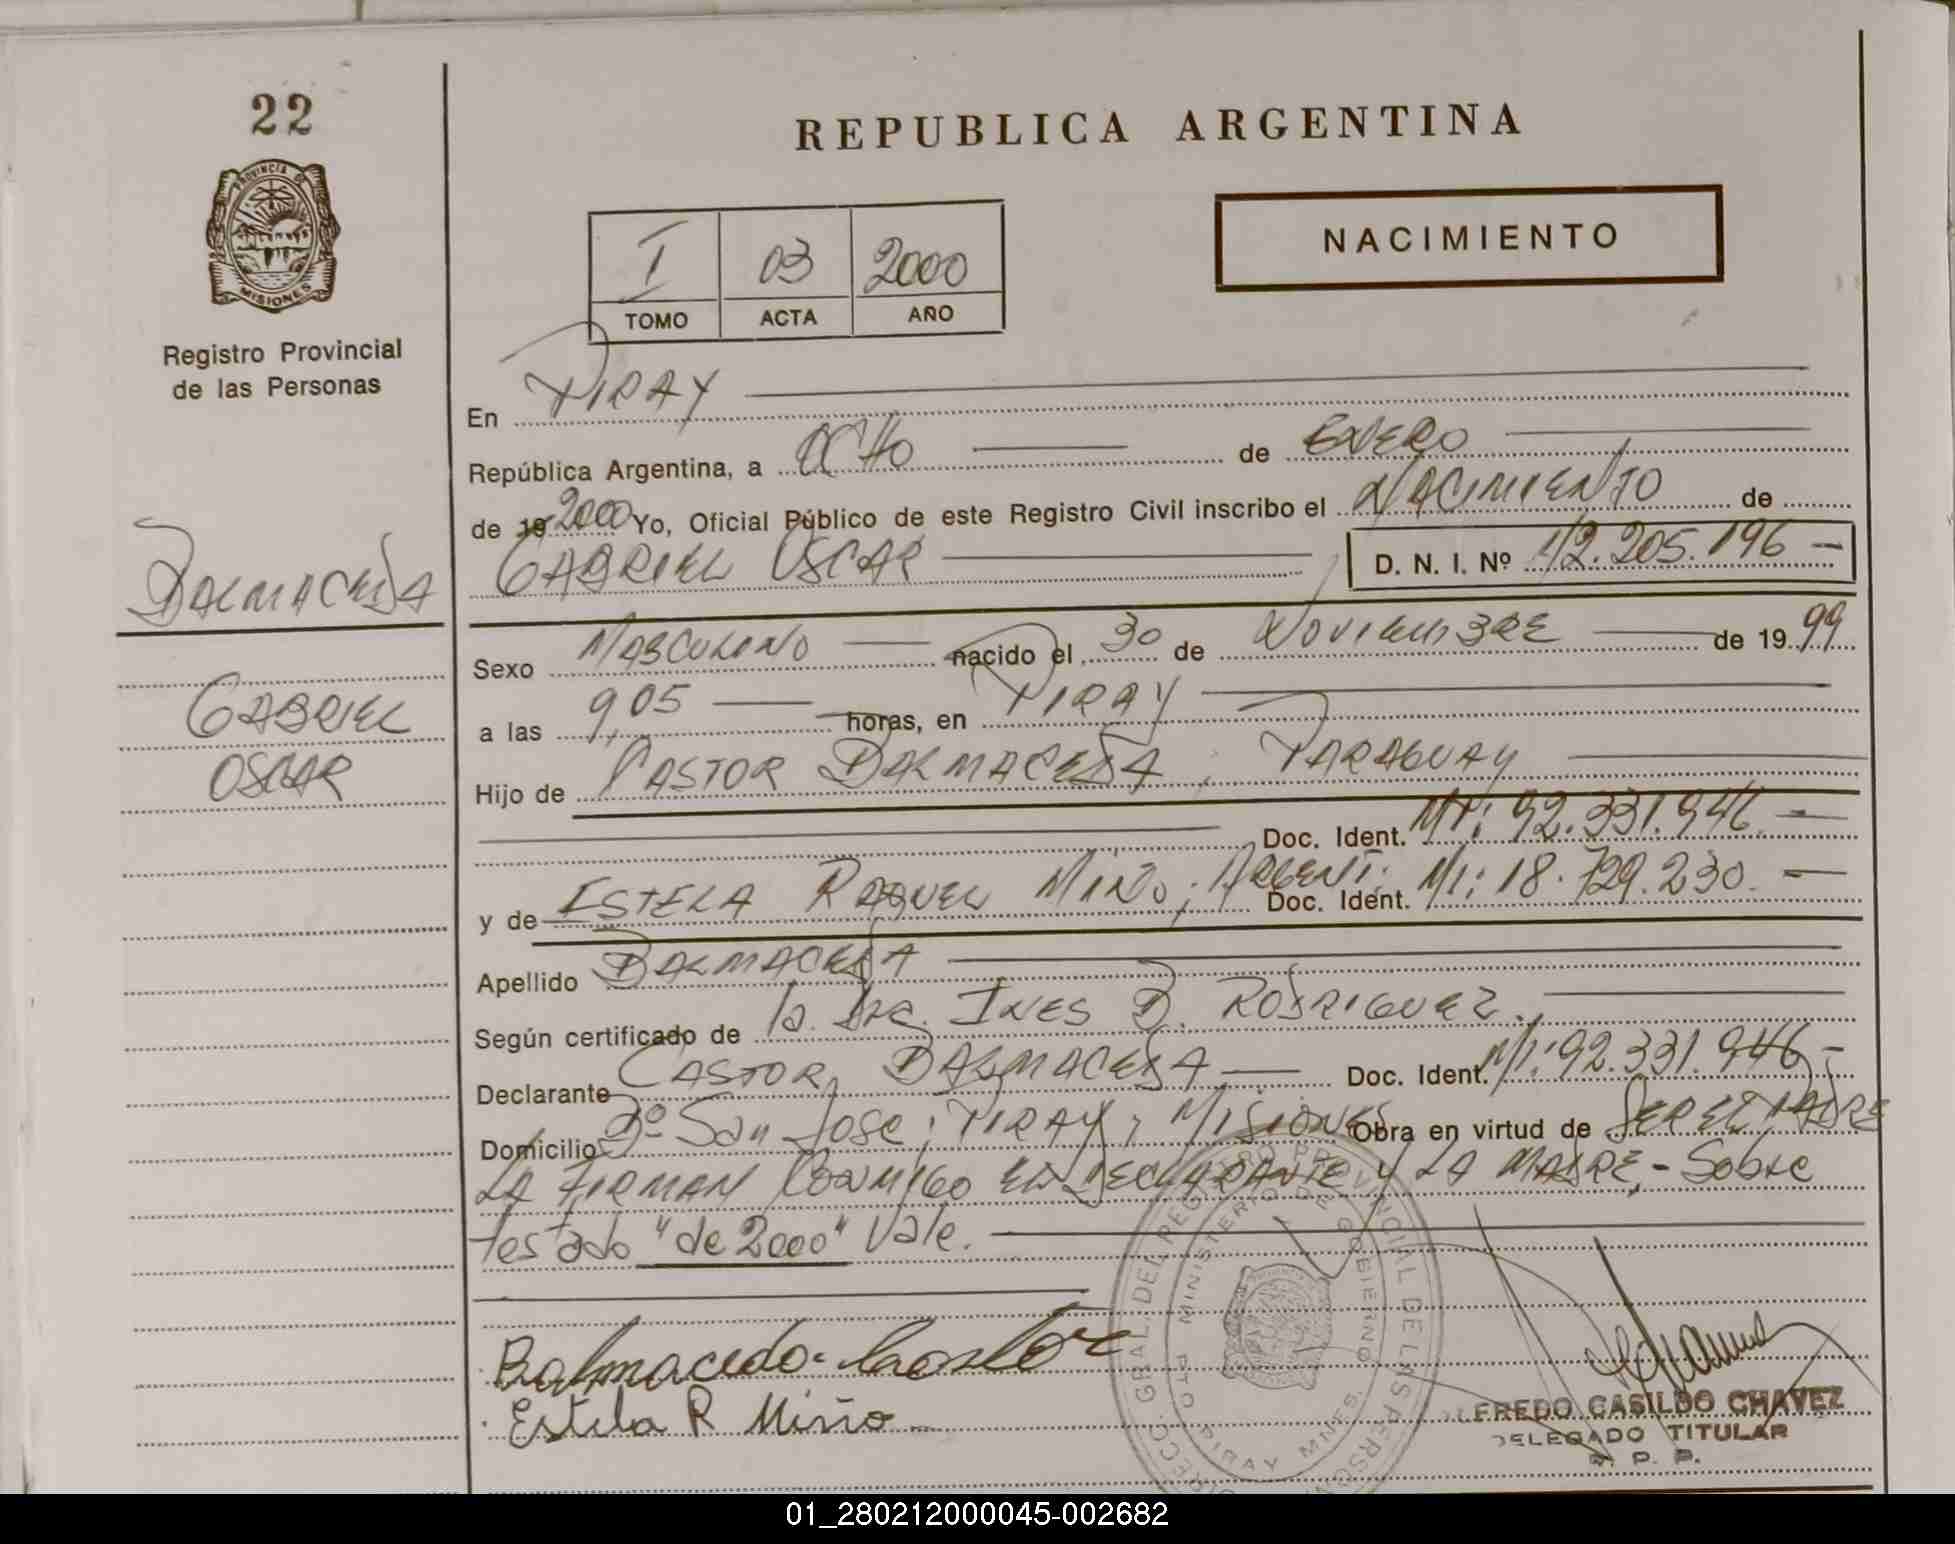 22
PROVINCIA DE
MISIONES
Registro Provincial
de las Personas
REPUBLICA ARGENTINA
NACIMIENTO
I 03 2000
TOMO ACTA AÑO
En PIRAY
República Argentina, a OCHO de ENERO
de 19 2000 Yo, Oficial Público de este Registro Civil inscribo el NACIMIENTO de
GABRIEL OSCAR D. N. I. Nº 42.205.196
BALMACEDA
Sexo MASCULINO nacido el 30 de NOVIEMBRE de 19 99
GABRIEL
a las 9,05 horas, en PIRAY
OSCAR
Hijo de CASTOR BALMACEDA; PARAGUAY
Doc. Ident. MI: 92.331.946.
y de ESTELA RAQUEL MIÑO; ARGENT. Doc. Ident. MI: 18.729.230.
Apellido BALMACEDA
Según certificado de la Dra. INES B. RODRIGUEZ.
Declarante CASTOR BALMACEDA Doc. Ident. MI: 92.331.946
Domicilio Bº San José; PIRAY, MISIONES Obra en virtud de SER EL PADRE
LA FIRMAN CONMIGO EL DECLARANTE Y LA MADRE,- Sobre
testado "de 2000" Vale.
Balmaceda Castor
Estela R Miño
DIRECC. GRAL. DEL REGISTRO PROVINCIAL DE LAS PERSO
MINISTERIO DE GOBIERNO
PTO PIRAY MNES.
LFREDO CASILDO CHAVEZ
DELEGADO TITULAR
R. P. P.
01_280212000045-002682